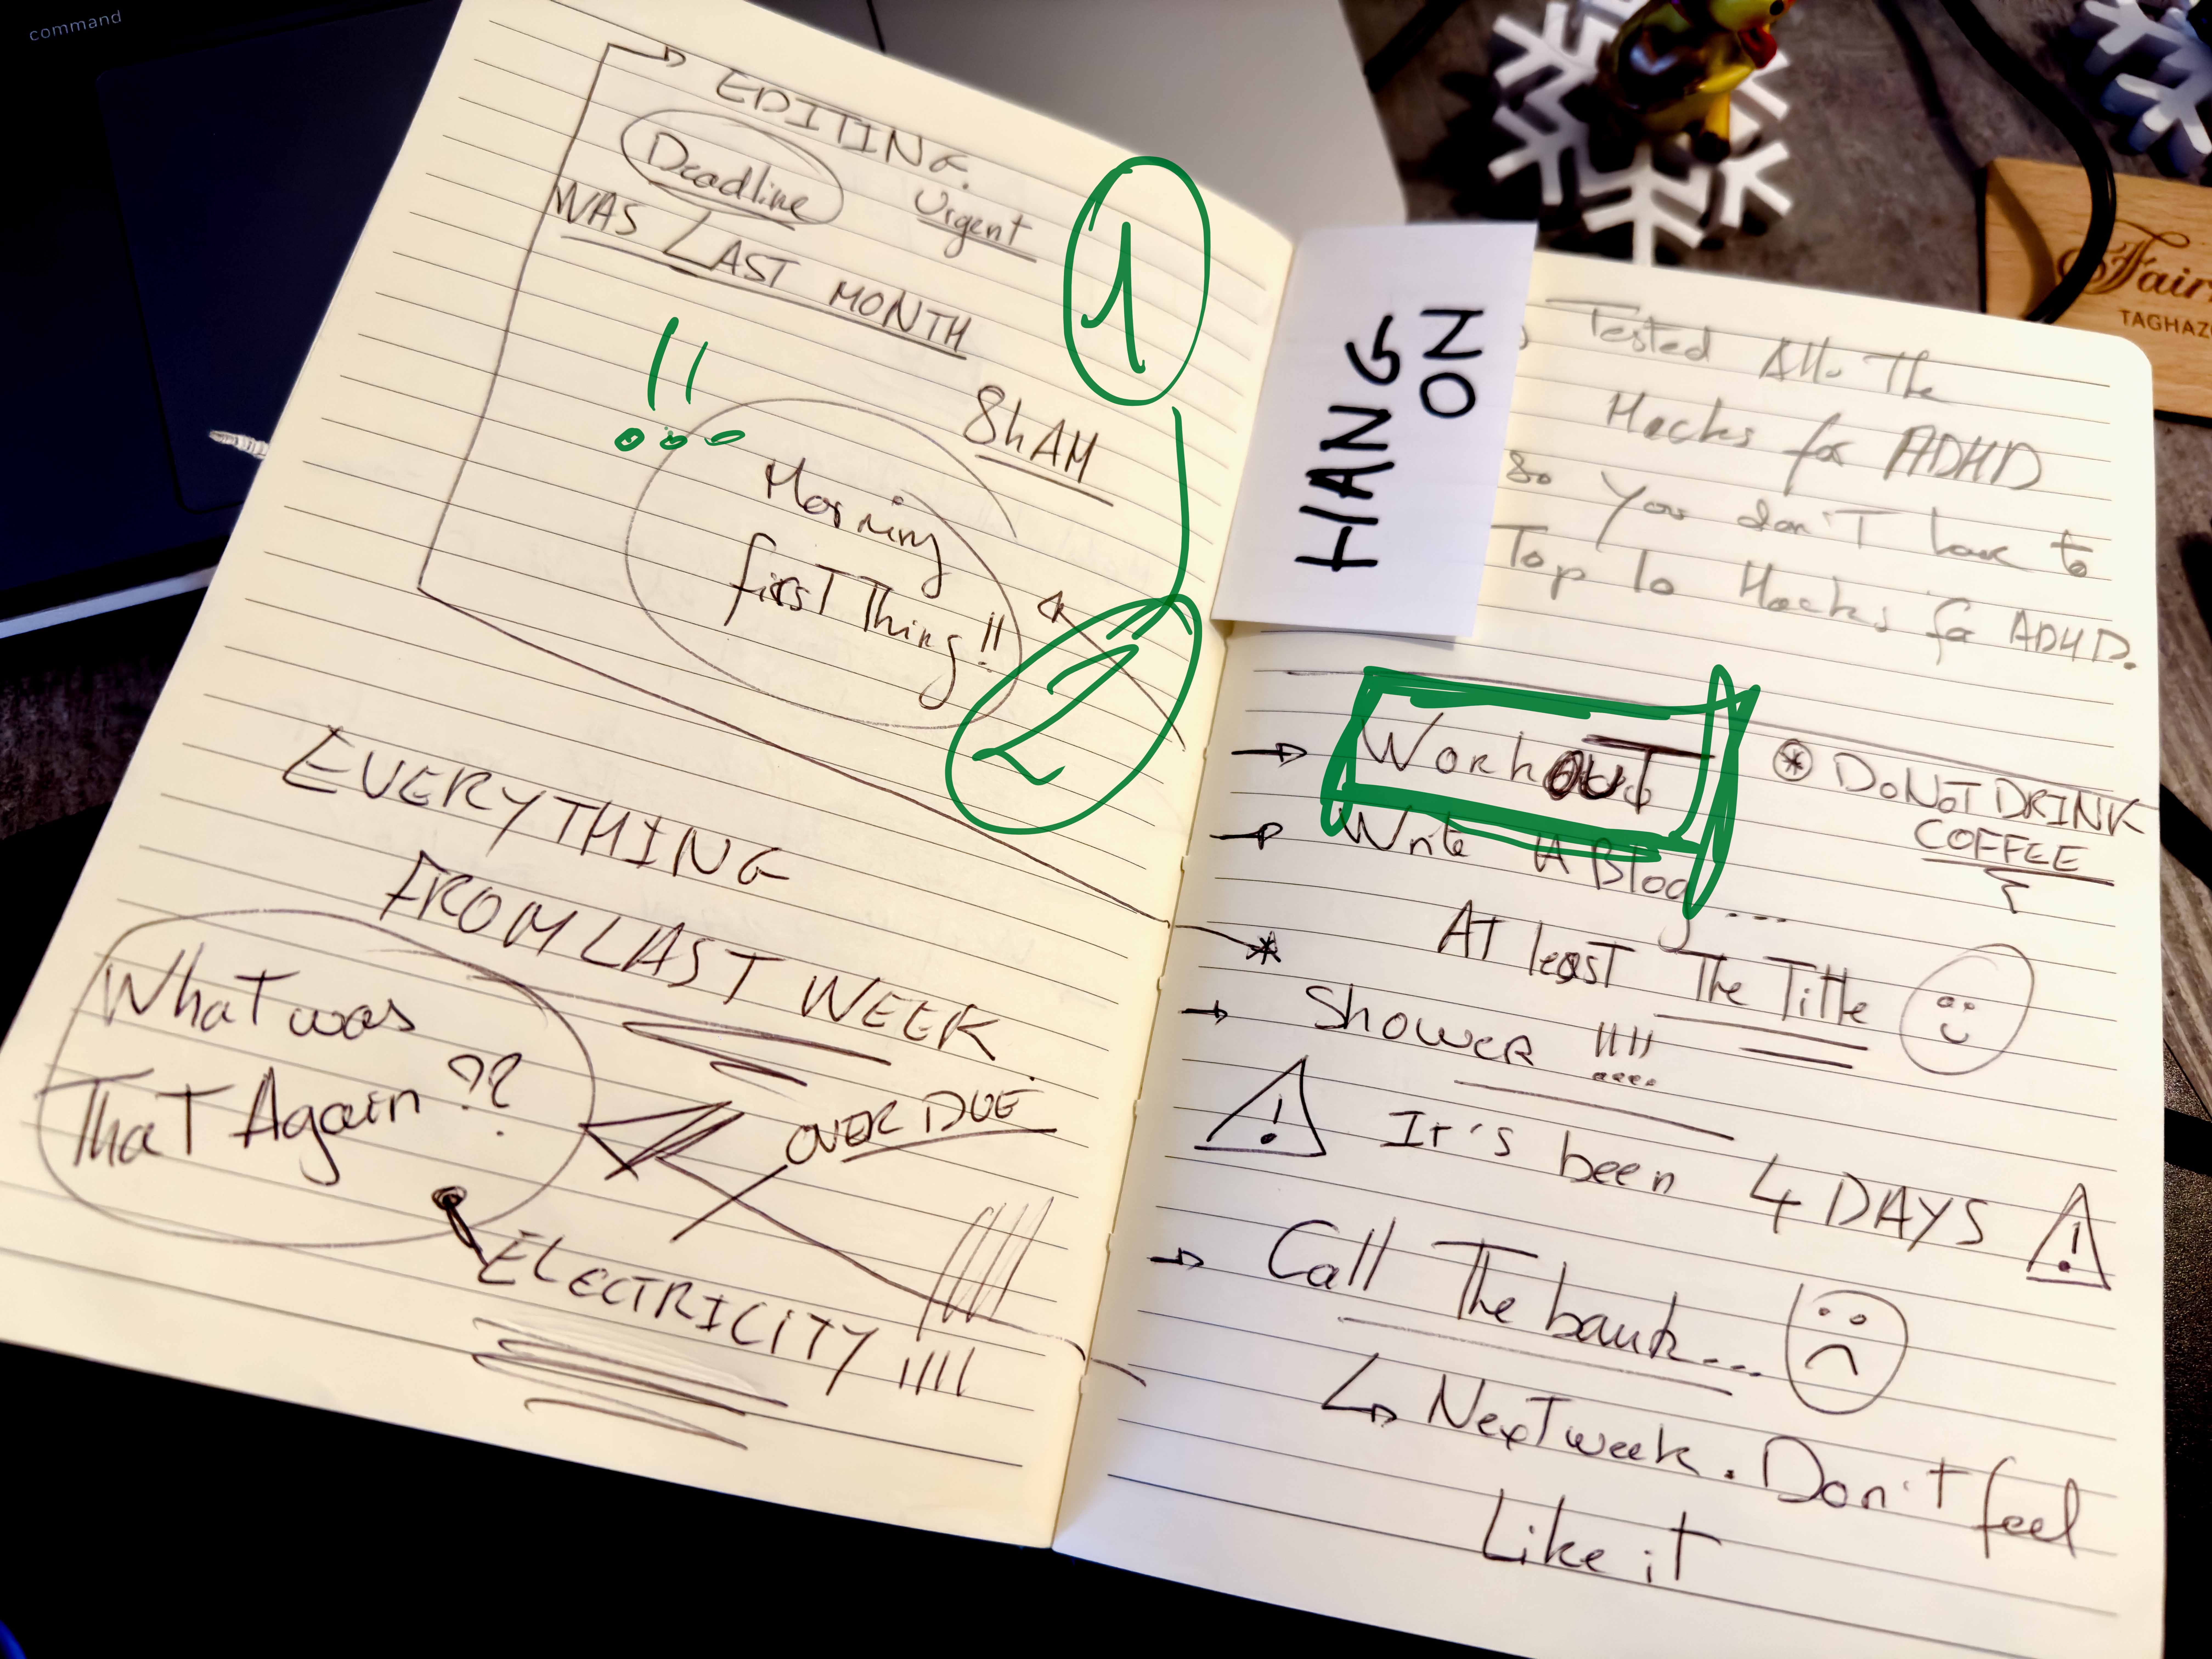 command
EDITING.
Deadline
Urgent
WAS LAST MONTH
1
!!
8h AM
Morning
first Thing!!
2
EVERYTHING
FROM LAST WEEK.
What was
That Again??
OVER DUE
ELECTRICITY !!!!
HANG
ON
Tested All The
Hacks for ADHD
so You don't have to
Top 10 Hacks for ADHD.
Workout
* DO NOT DRINK
COFFEE
Write A Blog...
At least The Title
Shower !!!!
! It's been 4 DAYS !
Call The bank...
Next week. Don't feel
Like it
Fair
TAGHAZO